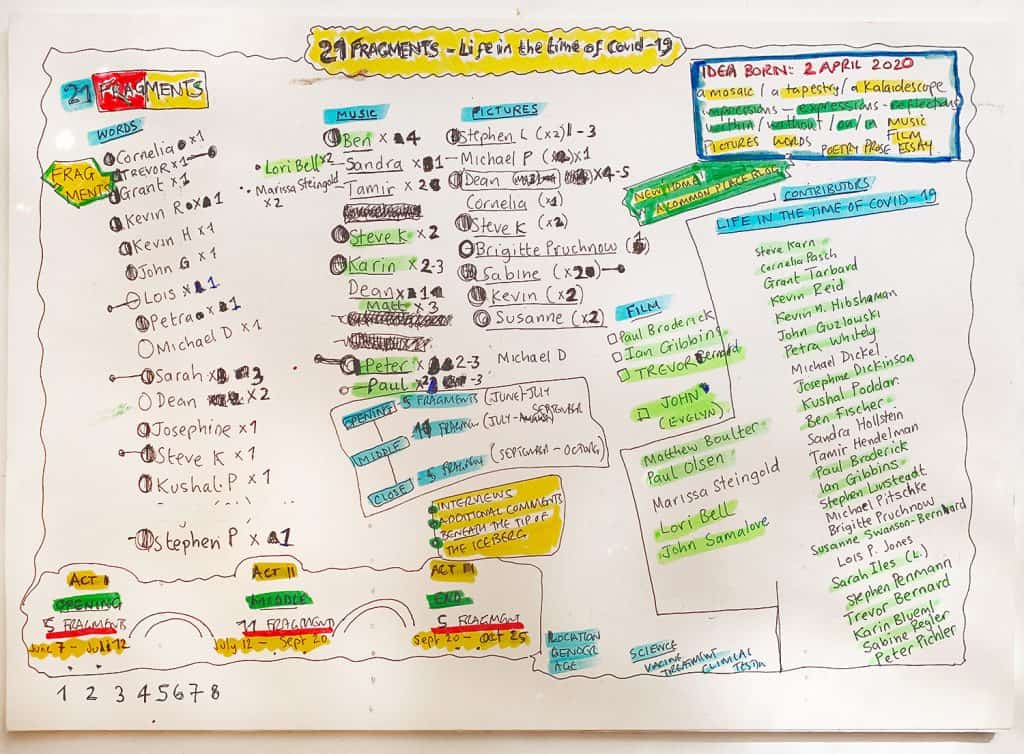 21 FRAGMENTS - Life in the time of Covid-19
21 FRAGMENTS
IDEA BORN: 2 APRIL 2020
a mosaic / a tapestry / a Kalaidescope
impressions - expressions - reflections
within / without / on / in MUSIC
PICTURES WORDS FILM
POETRY PROSE ESSAY
FRAG
MENTS
WORDS
Cornelia x 1
TREVOR x 1
Grant x 1
Kevin R x 1
Kevin H x 1
John G x 1
Lois x 1
Petra x 1
Michael D x 1
Sarah x 3
Dean x 2
Josephine x 1
Steve K x 1
Kushal P x 1
Stephen P x 1
MUSIC
Ben x 4
Lori Bell x 2
Sandra x 1
Marissa Steingold
x 2
Tamir x 2
Steve K x 2
Karin x 2-3
Dean x 1
Matt x 3
Peter x 2-3
Paul x 2-3
PICTURES
Stephen L (x2) - 3
Michael P x 1
Dean x 4-5
Cornelia (x1)
Steve K (x2)
Brigitte Pruchnow (1)
Sabine (x2)
Kevin (x2)
Susanne (x2)
Michael D
NEW HOME
A COMMON PLACE BLOG
FILM
Paul Broderick
Ian Gibbins
TREVOR Bernard
JOHN
(EVELYN)
Matthew Boulter
Paul Olsen
Marissa Steingold
Lori Bell
John Samalove
CONTRIBUTORS
LIFE IN THE TIME OF COVID-19
Steve Karn
Cornelia Pasch
Grant Tarbard
Kevin Reid
Kevin M. Hibshaman
John Guzlowski
Petra Whitely
Michael Dickel
Josephine Dickinson
Kushal Poddar
Ben Fischer
Sandra Hollstein
Tamir Hendelman
Paul Broderick
Ian Gibbins
Stephen Linsteadt
Michael Pitschke
Brigitte Pruchnow
Susanne Swanson-Bernhard
Lois P. Jones
Sarah Iles (L.)
Stephen Penmann
Trevor Bernard
Karin Blueml
Sabine Regler
Peter Pichler
OPENING 5 FRAGMENTS (JUNE-JULY
11 FRAGM (JULY- SEPTEMBER
MIDDLE
5 FRAGM (SEPTEMBER - OCTOBER)
CLOSE
INTERVIEWS
ADDITIONAL COMMENTS
BENEATH THE TIP OF
THE ICEBERG
ACT I
OPENING
5 FRAGMENTS
June 7 - July 12
ACT II
MIDDLE
11 FRAGMENT
July 12 - Sept 20
ACT III
END
5 FRAGMENT
Sept 20 - Oct 25
LOCATION
GENDER
AGE
SCIENCE
VACCINE
TREATMENT CLINICAL
TESTING
1 2 3 4 5 6 7 8